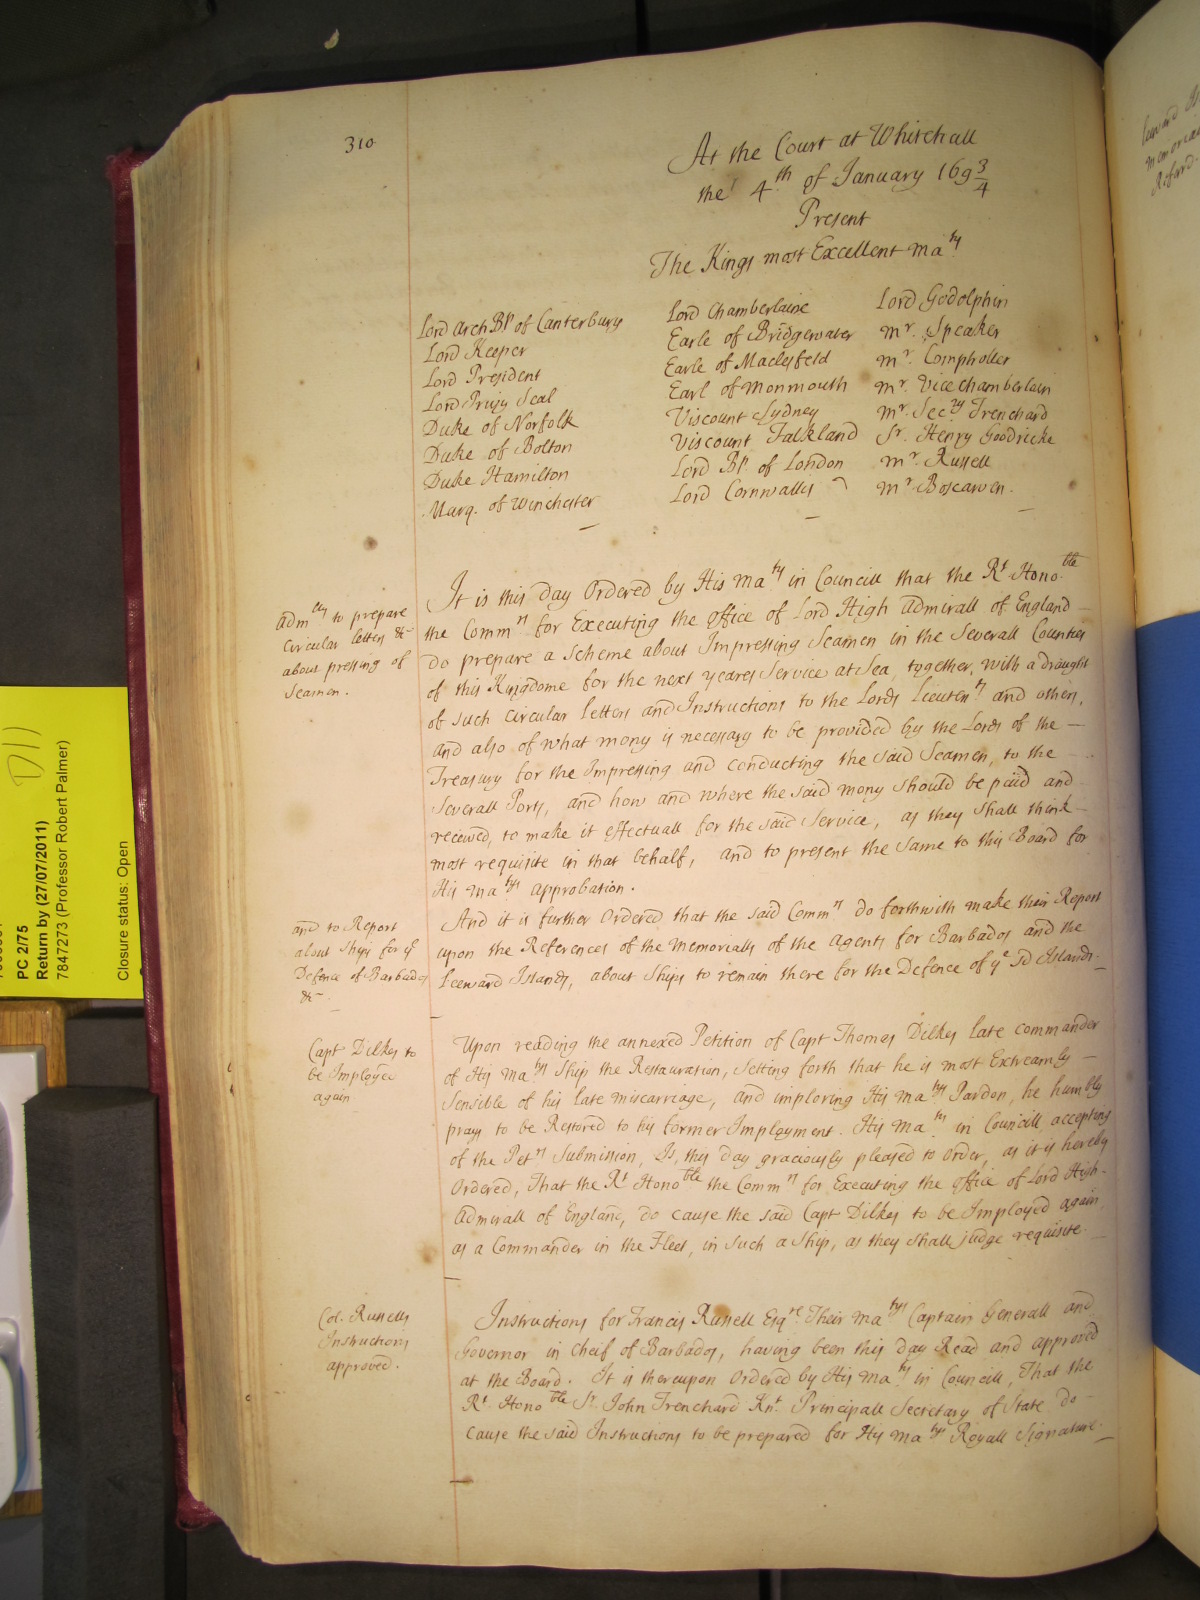 310
At the Court at Whitehall
the 4th of January 169 3/4
Present
The Kings most Excellent Maty
Lord Arch Bp of Canterbury
Lord Keeper
Lord President
Lord Privy Seal
Duke of Norfolk
Duke of Bolton
Duke Hamilton
Marq. of Winchester
Lord Chamberlaine
Earle of Bridgewater
Earle of Maclesfeld
Earl of Monmouth
Viscount Sydney
Viscount Falkland
Lord Bp of London
Lord Cornwallis
Lord Godolphin
Mr. Speaker
Mr. Comptroller
Mr. Vice chamberlain
Mr. Secry Trenchard
Sr. Henry Goodricke
Mr. Russell
Mr. Boscawen.
Admlty to prepare
Circular letters &c
about pressing of
Seamen.
It is this day Ordered by His Maty in Councill that the Rt Honoble
the Commrs for Executing the Office of Lord High Admirall of England
do prepare a Scheme about Impressing Seamen in the Severall Counties
of this Kingdome for the next yeares Service at Sea, together, with a draught
of such Circular letters and Instructions to the Lords Lieutents and others,
and also of what mony is necessary to be provided by the Lords of the
Treasury for the Impressing and conducting the said Seamen, to the
Severall Ports, and how and where the said mony should be paid and
received, to make it effectuall for the said Service, as they shall think
most requisite in that behalf, and to present the same to this Board for
His Matys approbation.
and to Report
about Ships for ye
Defence of Barbados
&c
And it is further Ordered that the said Commrs do forthwith make their Report
upon the References of the Memorialls of the Agents for Barbados and the
Leeward Islands, about Ships to remain there for the Defence of ye sd Islands.
Capt Dilkes to
be Imployed
again
Upon reading the annexed Petition of Capt Thomas Dilkes late commander
of His Matys Ship the Restauration, Setting forth that he is most Extreamly
Sensible of his late miscarriage, and imploring His Matys Pardon, he humbly
prays to be Restored to his former Imployment. His Maty in Councill accepting
of the Petrs Submission, Is, this day graciously pleased to Order, as it is hereby
Ordered, That the Rt Honoble the Commrs for Executing the Office of Lord High
Admirall of England, do cause the said Capt Dilkes to be Imployed again
as a Commander in the Fleet, in such a Ship, as they shall judge requisite.
Col. Russells
Instructions
approved.
Instructions for Francis Russell Esqre Their Matys Captain Generall and
Governor in Cheif of Barbados, having been this day Read and approved
at the Board. It is thereupon Ordered by His Maty in Councill, That the
Rt Honoble Sr John Trenchard Knt Principall Secretary of State do
cause the said Instructions to be prepared for His Matys Royall Signature.
PC 2/75
Return by (27/07/2011)
7847273 (Professor Robert Palmer)
Closure status: Open
D11